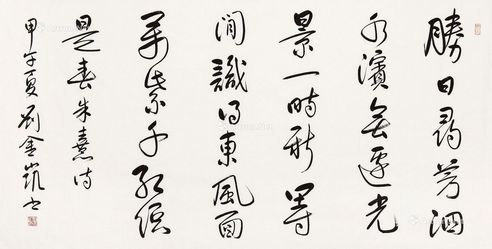 勝日尋芳泗
水濱無邊光
景一時新等
閒識得東風面
萬紫千紅總
是春朱熹詩
甲午夏劉金凱書